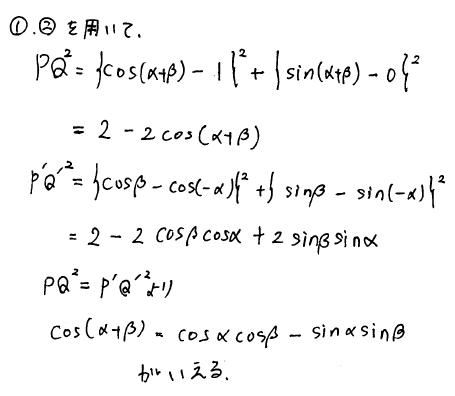 ①.② を用いて、
PQ² = {cos(α+β) - 1}² + {sin(α+β) - 0}²
= 2 - 2 cos(α+β)
P'Q'² = {cosβ - cos(-α)}² + {sinβ - sin(-α)}²
= 2 - 2 cosβ cosα + 2 sinβ sinα
PQ² = P'Q'² より
cos(α+β) = cosα cosβ - sinα sinβ
がいえる.